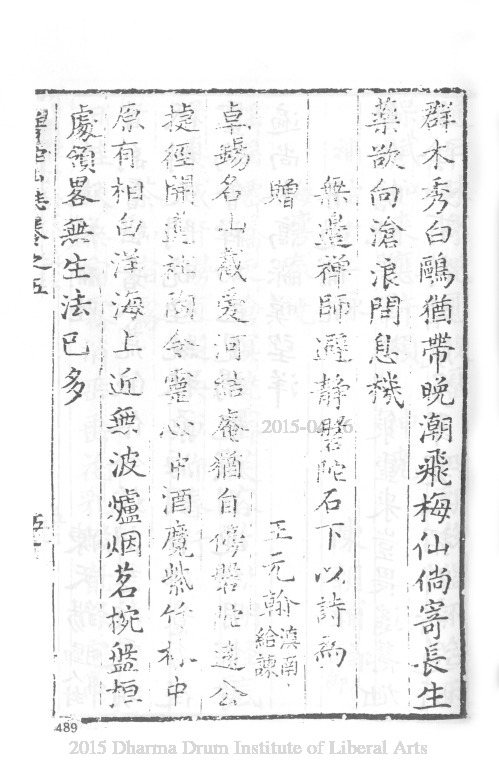 群木秀白鷗猶帶晚潮飛梅仙倘寄長生
藥欲向滄浪問息機
無邊禪師避靜磐陀石下以詩為
贈
王元翰 滇南給諫
卓錫名山戴愛河結庵猶自傍磐陀遠公
捷徑開蓮社 靈心中酒魔紫竹林中
原有相白洋海上近無波爐烟茗椀盤桓
處領畧無生法已多
卷之五
2015-04-16
489
2015 Dharma Drum Institute of Liberal Arts